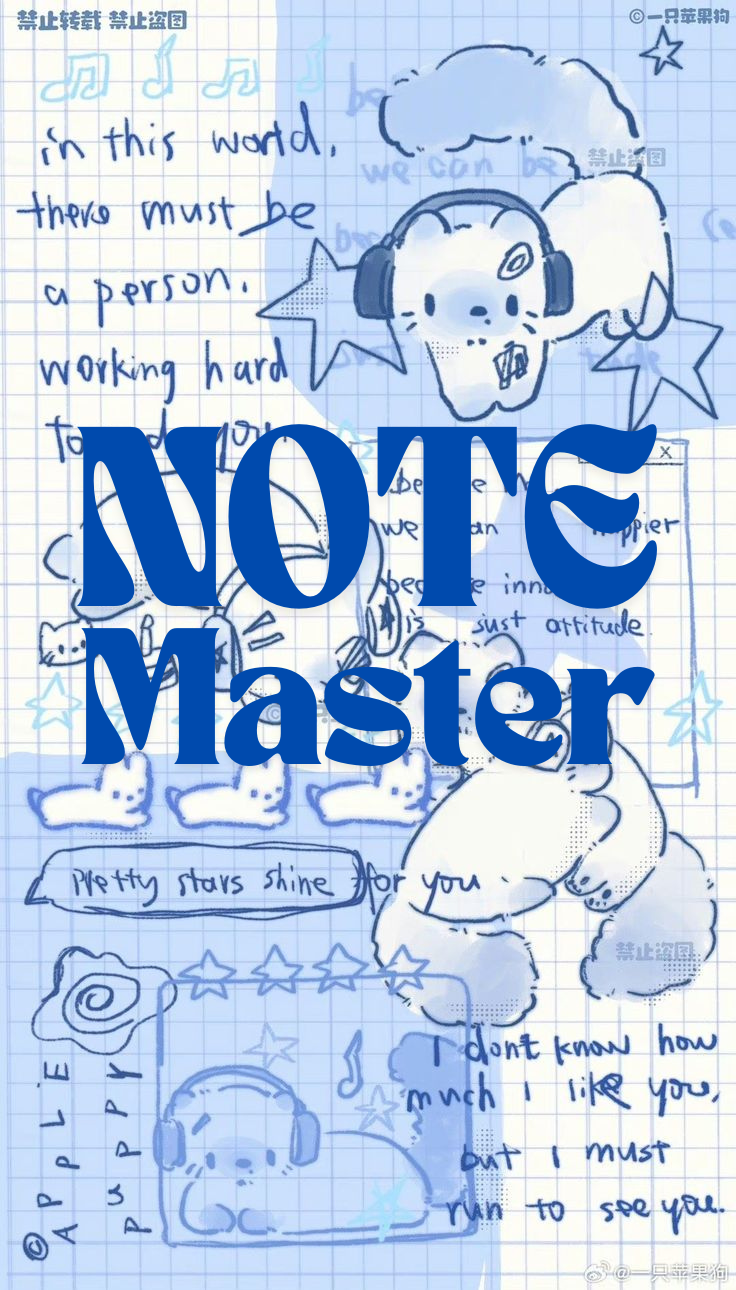 禁止转载 禁止盗图
©一只苹果狗
in this world,
there must be
a person.
working hard
to you
we can be
禁止盗图
NOTE
Master
x
we an ppier
is just attitude
Pretty stars shine for you
禁止盗图
I don't know how
much I like you,
but I must
run to see you.
©APPLE
PUPPY
@一只苹果狗